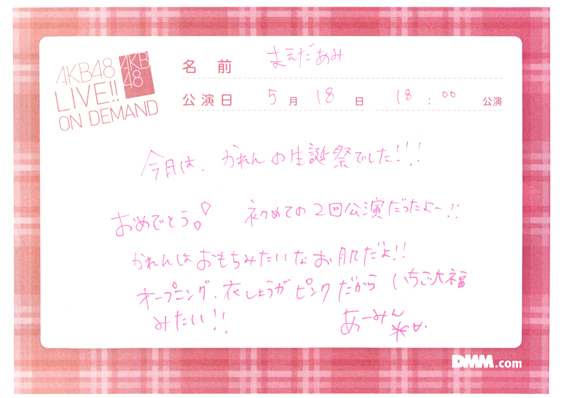 AKB48
LIVE!!
ON DEMAND
AKB
48
名 前 まえだあみ
公演日 5 月 18 日 18 : 00 公演
今日は、かれんの生誕祭でした!!!
おめでとう。! 初めての2回公演だったよー!!
かれんはおもちみたいなお肌だよ!!
オープニング、衣しょうがピンクだから いちご大福
みたい!!
あーみん
DMM.com